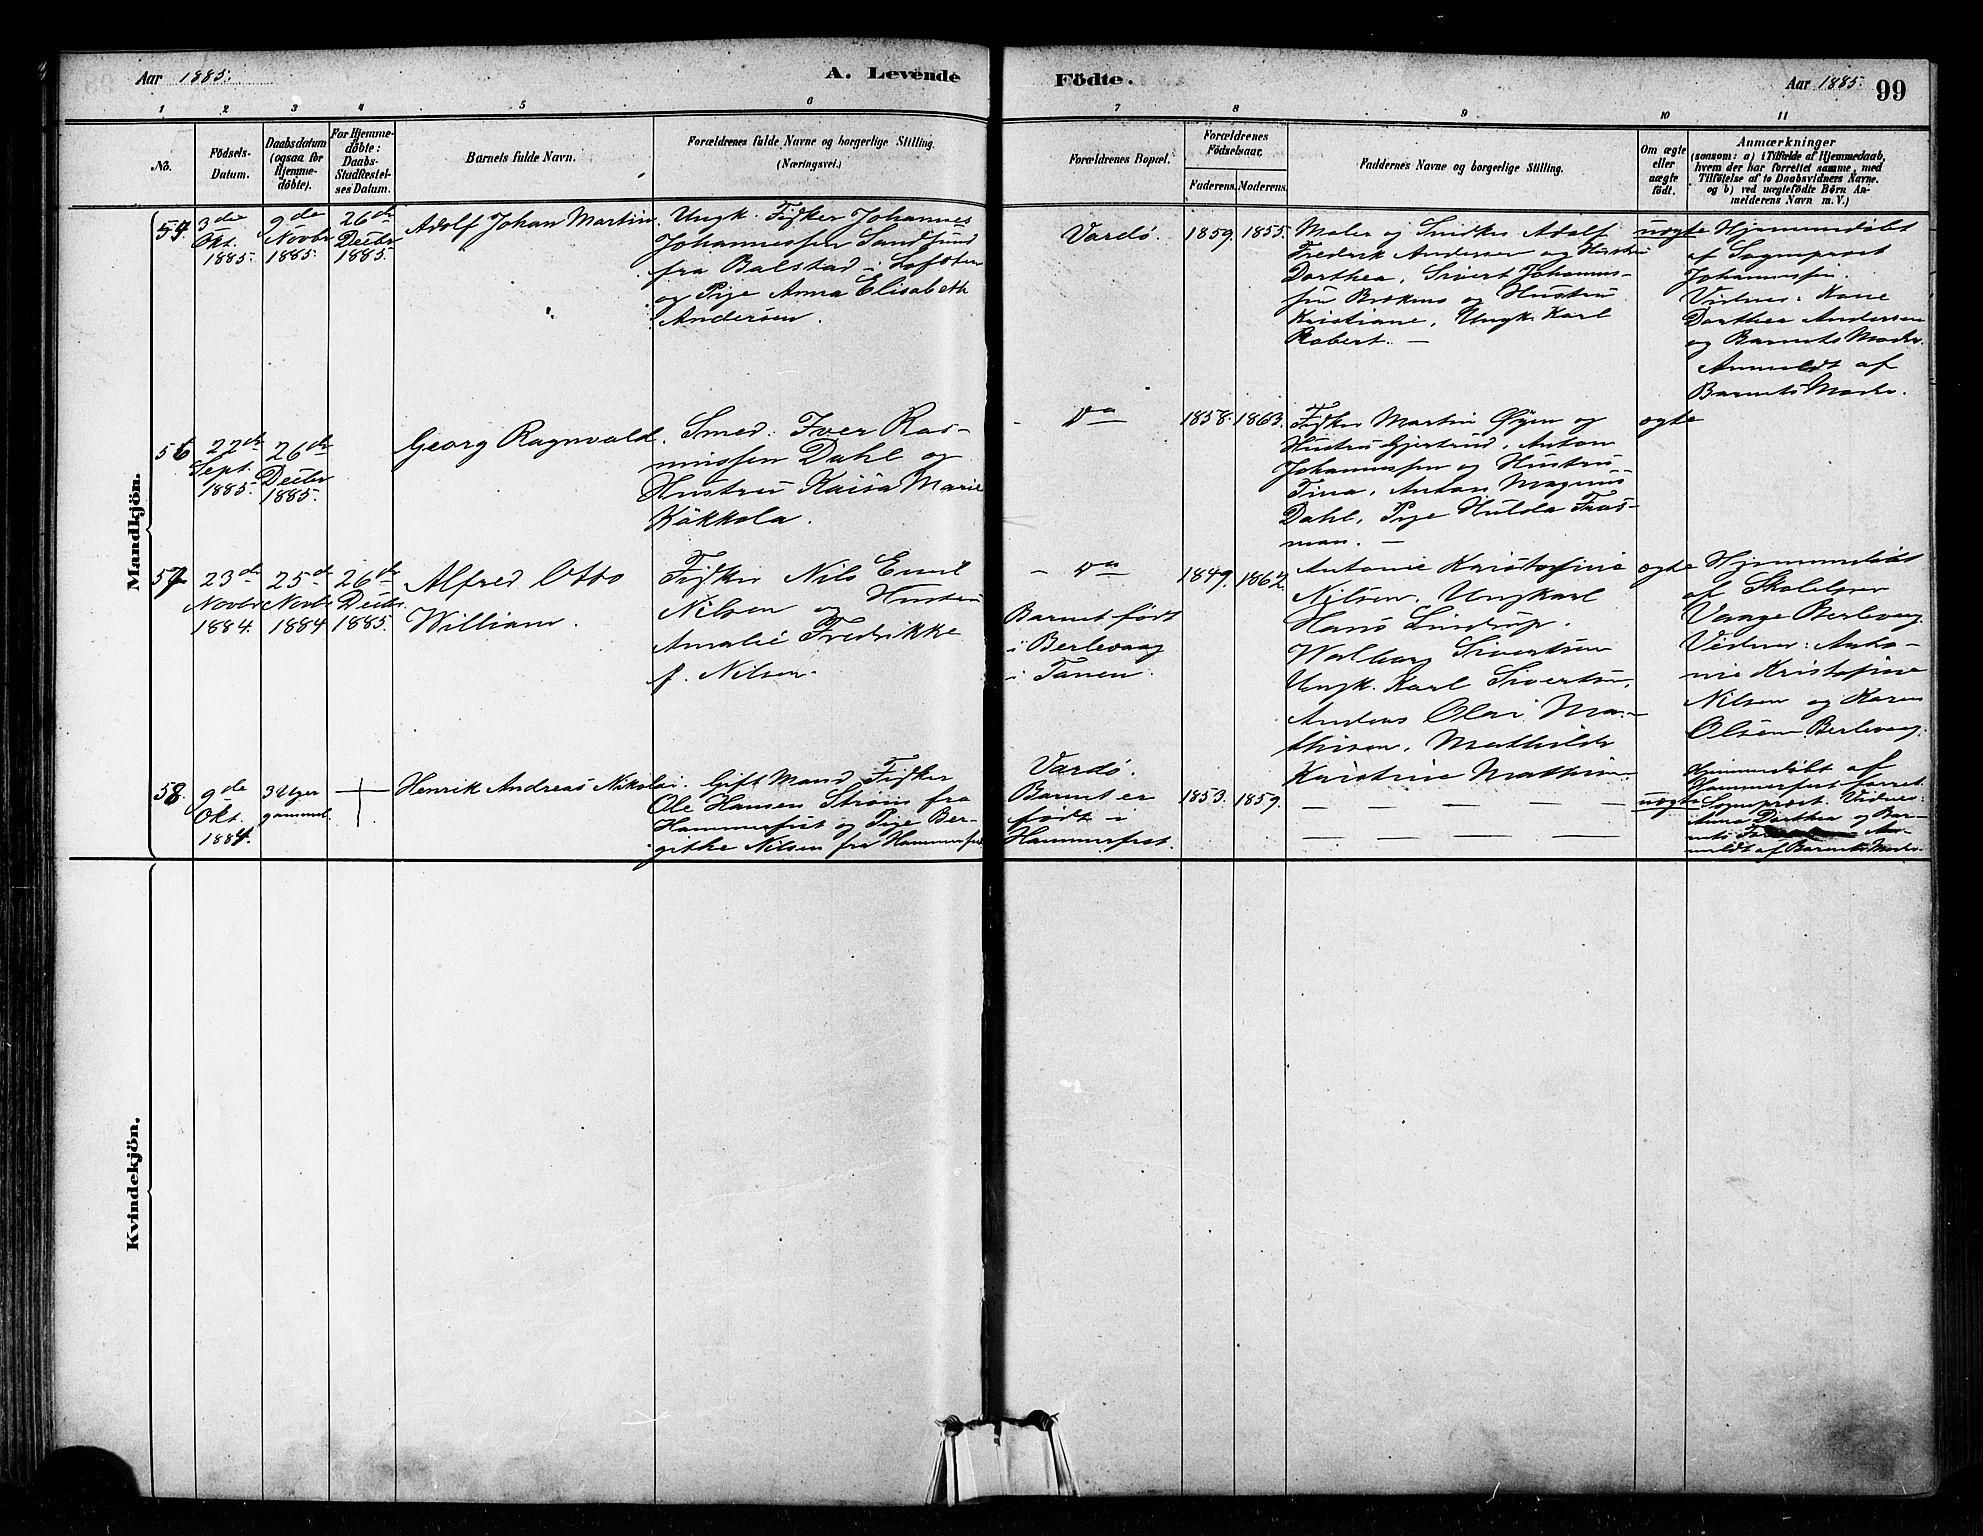 Aar 1885.
A. Levende
Födte.
Aar 1885.
99
1 2 3 4 5 6 7 8 9 10 11
No.
Födsels-
Datum.
Daabsdatum
(ogsaa for
Hjemme-
döbte).
For Hjemme-
döbte:
Daabs-
Stadfestel-
ses Datum.
Barnets fulde Navn.
Forældrenes fulde Navne og borgerlige Stilling.
(Næringsvei.)
Forældrenes Bopæl.
Forældrenes
Födselsaar.
Faderens. Moderens.
Faddernes Navne og borgerlige Stilling.
Om ægte
eller
uægte
födt.
Anmærkninger
(saasom: a) i Tilfælde af Hjemmedaab,
hvem der har forrettet samme, med
Tilföielse af to Daabsvidners Navne.
og b) ved uægtefödte Börn An-
melderens Navn m. V.)
Mandkjön.
3die
Okt.
1885.
9de
Novbr
1885.
26de
Decbr
1885.
Adolf Johan Martin.
Ungk. Fisker Johannes
Johannessen Sandsund
fra Balstad i Lofoten
og Pige Anna Elisabeth
Andersen.
Vardö.
1859. 1855.
Maler og Snidker Adolf
Frederik Andersen og Hustru
Dorthea, Sivert Johannes-
sen og Hustru
Kristiane, Ungk. Karl
Robert. —
uægte
Hjemmedöbt
af Sogneprost
Johannessen.
Vidner: Kone
Dorthea Andersen
og Barnets Moder.
Anmeldt af
Barnets Moder.
56
22de
Sept.
1885.
26de
Decbr
1885.
Georg Ragnvald.
Smed: Iver Ras-
mussen Dahl og
Hustru Kaisa Marie
Kökkola.
- Do
1858. 1863.
Fisker Martin Öyen og
Hustru Gjertrud, Anton
Johannessen og Hustru
Tina, Anton Magnus
Dahl, Pige Hulda Fors-
man. —
ægte
57
23de
Novbr
1884.
25de
Novbr
1884
26de
Decbr.
1885.
Alfred Otto
William.
Fisker Nils Emil
Nilsen og Hustru
Amalie Fredrikke
f. Nilsen.
- Do
Barnet födt
i Berlevaag
i Tanen.
1849. 1862.
Antonie Kristofine
Nilsen, Ungkarl
Hans Lindrup.
Walborg Sivertsen
Ungk. Karl Sivertsen,
Anders Olai Ma-
thisen, Mathilde
Kristine Mathisen.
ægte
Hjemmedöbt
af Skolelærer
Vaage Berlevaag.
Vidner: Anto-
nie Kristofine
Nilsen og Karen
Olsen Berlevaag.
58
9de
Okt.
1884.
3 Uger
gammel
Henrik Andreas Nikolai.
Gift Mand, Fisker
Ole Hansen Ström fra
Hammerfest og Pige Ber-
githe Nilsen fra Hammerfest
Vardö.
Barnet er
födt i
Hammerfest.
1853. 1859.
— — — — — —
— — — — — —
uægte
Hjemmedöbt af
Hammerfest
Sogneprost. Vidner:
Anna Dorthea og Bar-
nets An-
meldt af Barnets Moder.
Kvindekjön.